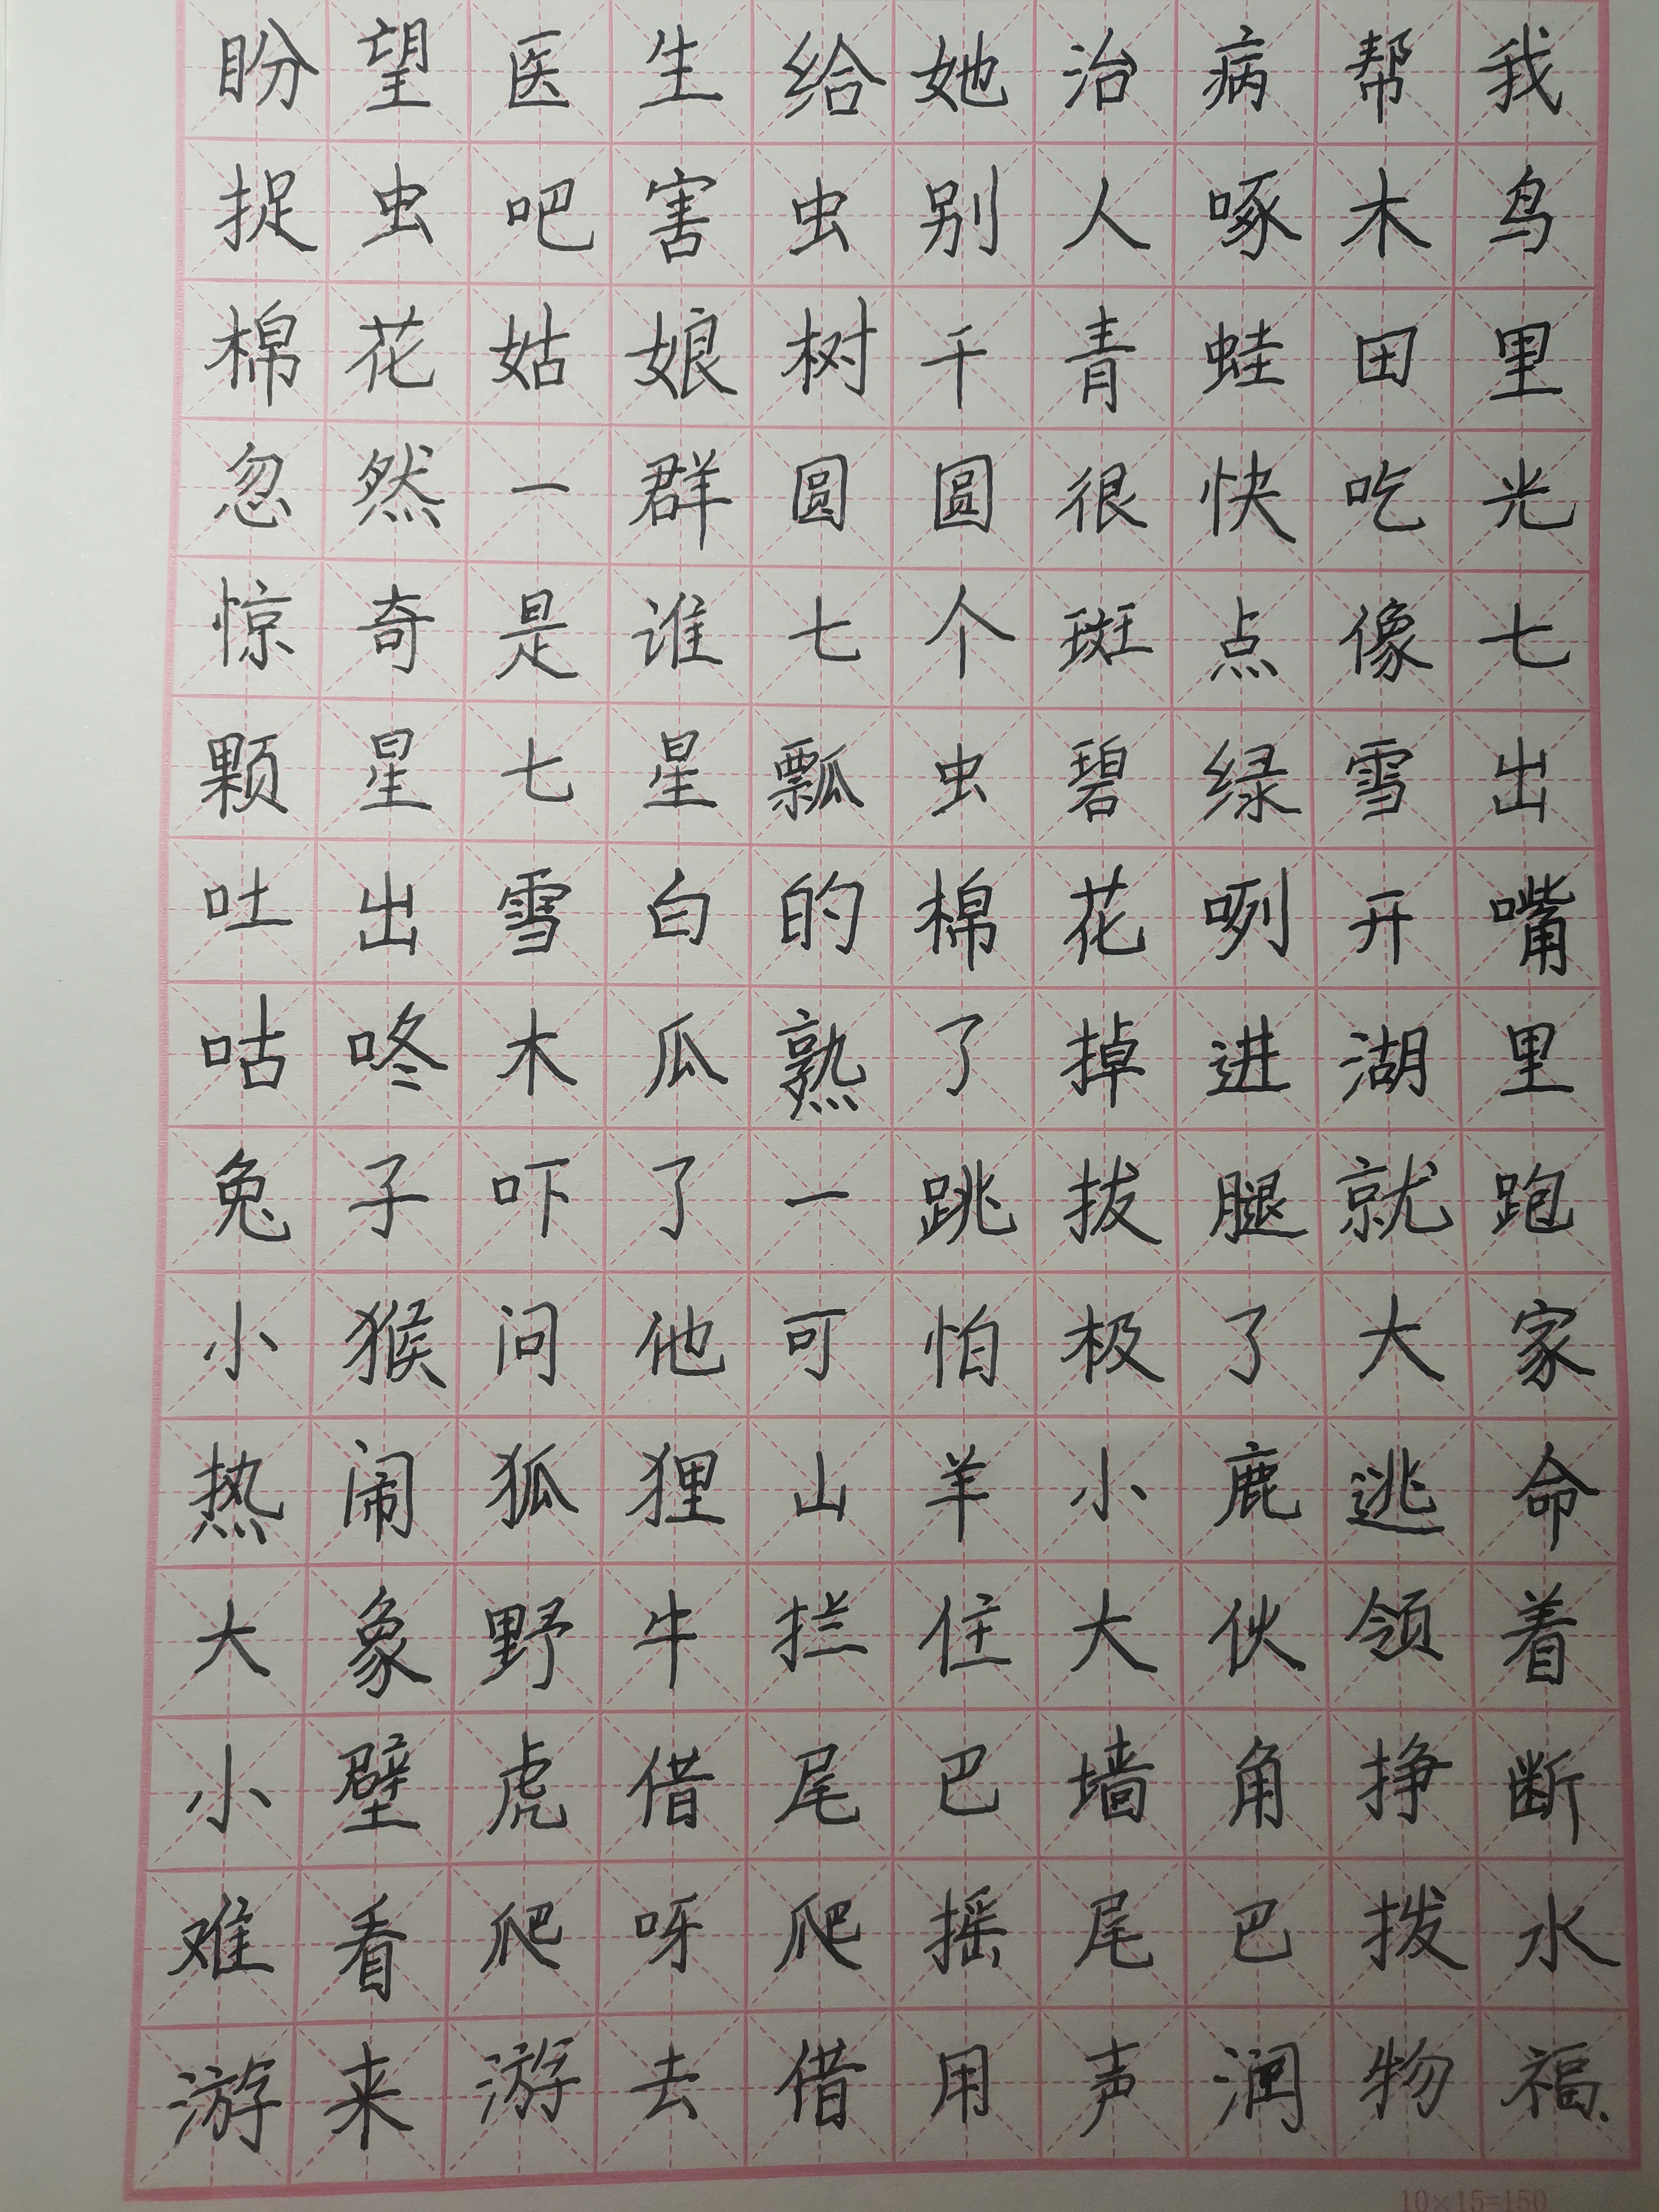 盼望医生给她治病帮我
捉虫吧害虫别人啄木鸟
棉花姑娘树干青蛙田里
忽然一群圆圆很快吃光
惊奇是谁七个斑点像七
颗星七星瓢虫碧绿雪出
吐出雪白的棉花咧开嘴
咕咚木瓜熟了掉进湖里
兔子吓了一跳拔腿就跑
小猴问他可怕极了大家
热闹狐狸山羊小鹿逃命
大象野牛拦住大伙领着
小壁虎借尾巴墙角挣断
难看爬呀爬摇尾巴拨水
游来游去借用声润物福.
10×15=150